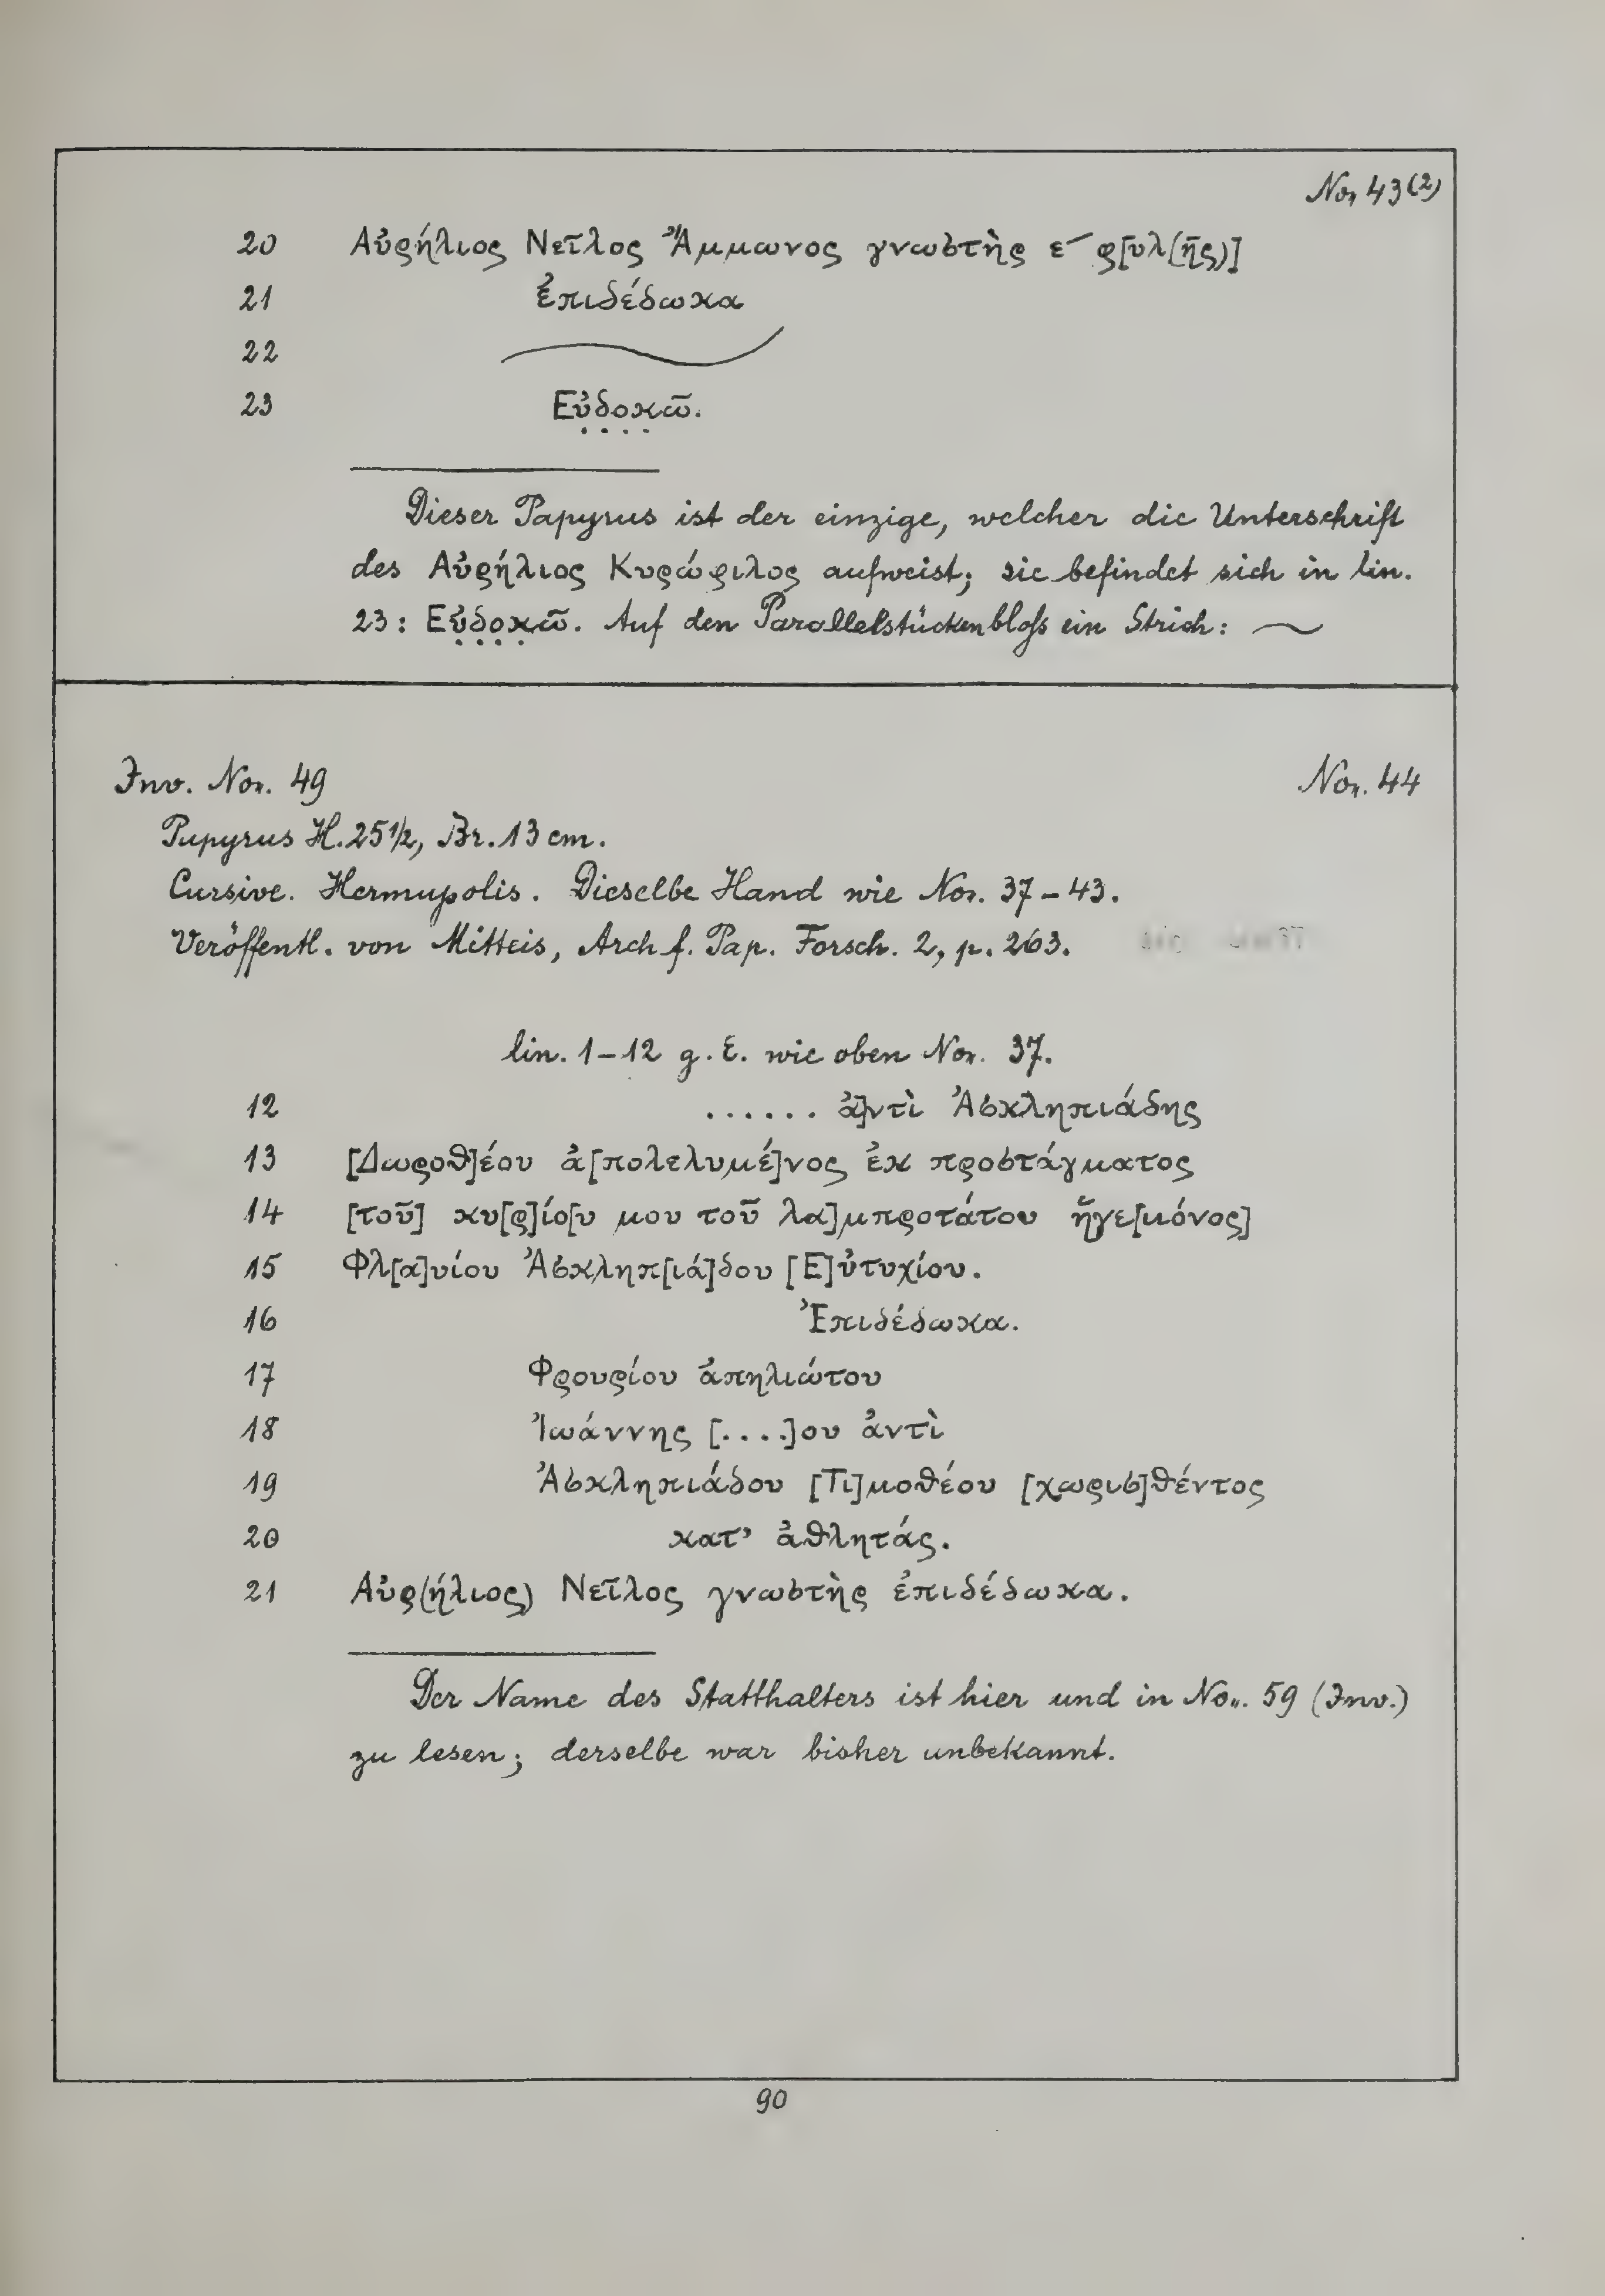 Nor. 43(2)
20 Αὐρήλιος Νεῖλος Ἄμμωνος γνωστὴς ε– φ[υλ(ῆς)]
21 ἐπιδέδωκα
22
23 Εὐδοκῶ.
Dieser Papyrus ist der einzige, welcher die Unterschrift
des Αὐρήλιος Κυρώφιλος aufweist; sie befindet sich in lin.
23: Εὐδοκῶ. Auf den Parallelstücken bloſs ein Strich: ~
Inv. Nor. 49
Nor. 44
Papyrus H. 25½, Br. 13 cm.
Cursive. Hermupolis. Dieselbe Hand wie Nor. 37–43.
Veröffentl. von Mitteis, Arch f. Pap. Forsch. 2, p. 263.
lin. 1–12 g. E. wie oben Nor. 37.
12 ...... ἀ]ντὶ Ἀσκληπιάδης
13 [Δωροθ]έου ἀ[πολελυμέ]νος ἐκ προστάγματος
14 [τοῦ] κυ[ρ]ίο[υ μου τοῦ λα]μπροτάτου ἡγε[μόνος]
15 Φλ[α]υίου Ἀσκληπ[ιά]δου [Ε]ὐτυχίου.
16 Ἐπιδέδωκα.
17 Φρουρίου ἀπηλιώτου
18 Ἰωάννης [....]ου ἀντὶ
19 Ἀσκληπιάδου [Τι]μοθέου [χωρισ]θέντος
20 κατ' ἀθλητάς.
21 Αὐρ(ήλιος) Νεῖλος γνωστὴς ἐπιδέδωκα.
Der Name des Statthalters ist hier und in Nor. 59 (Inv.)
zu lesen; derselbe war bisher unbekannt.
90